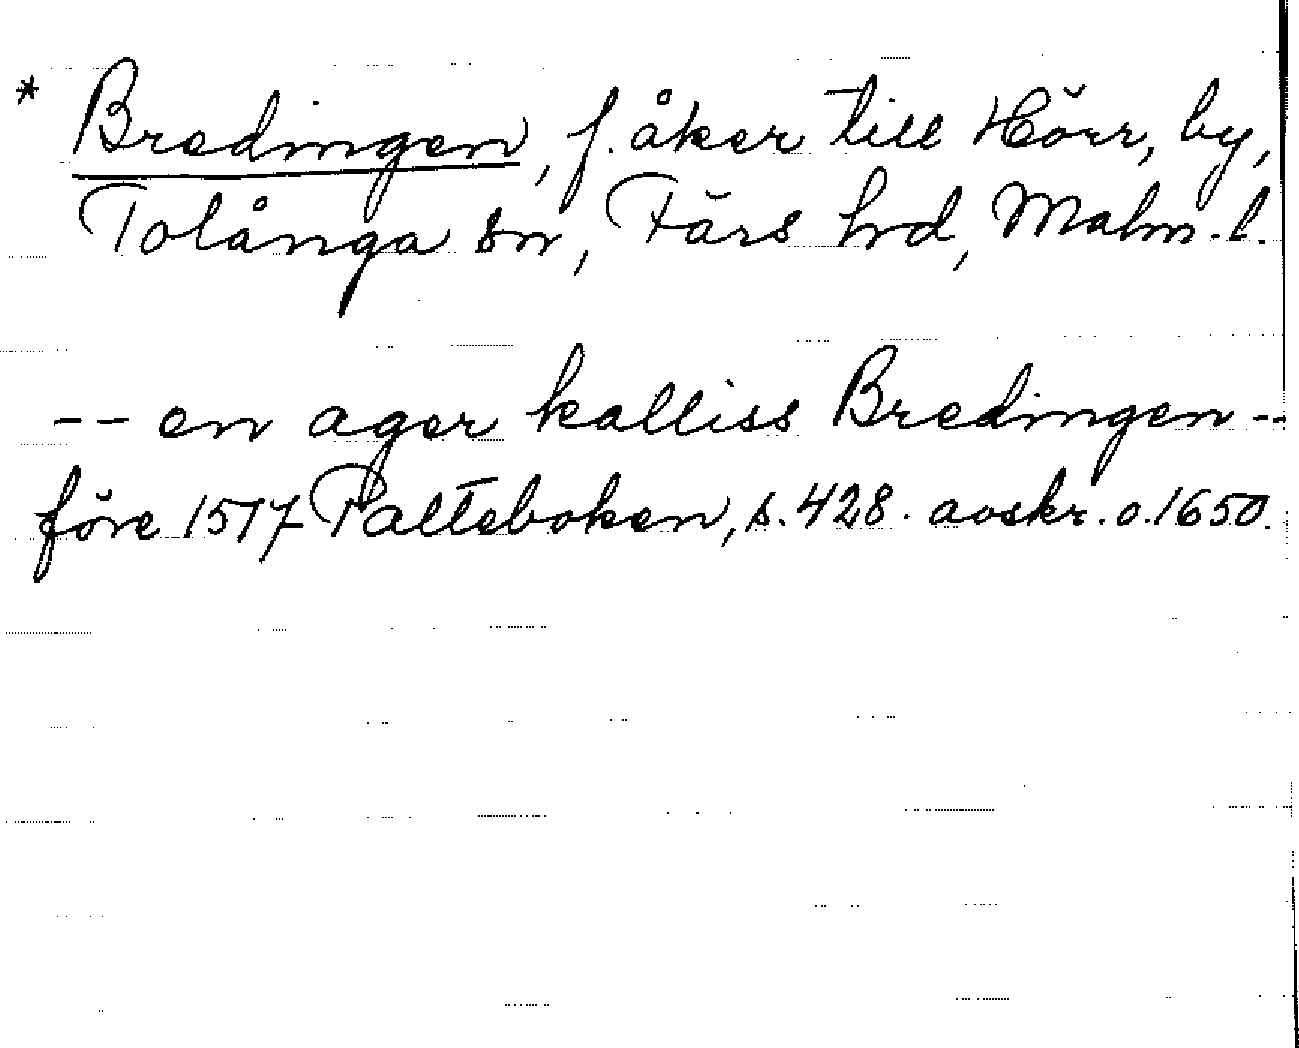 * Bredingen, f. åker till Hörr, by,
Tolånga sn, Färs hrd, Malm. l.
-- en ager kalliss Bredingen --
före 1517 Palteboken, s. 428. avskr. o. 1650.